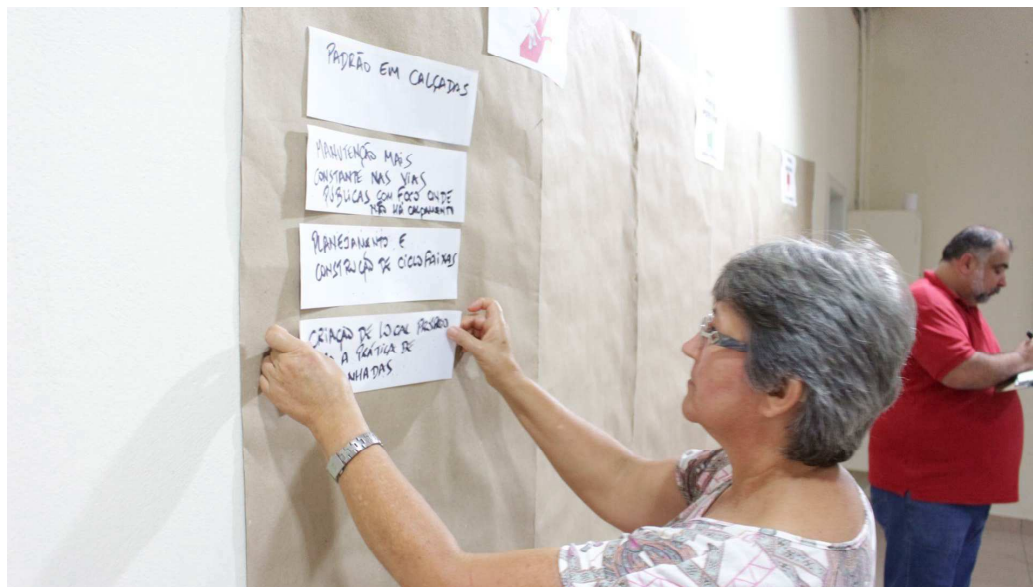 PADRÃO EM CALÇADAS
MANUTENÇÃO MAIS
CONSTANTE NAS VIAS
PÚBLICAS COM FOCO ONDE
NÃO HÁ CALÇAMENTO
PLANEJAMENTO E
CONSTRUÇÃO DE CICLOFAIXAS
CRIAÇÃO DE LOCAL
A PRÁTICA DE